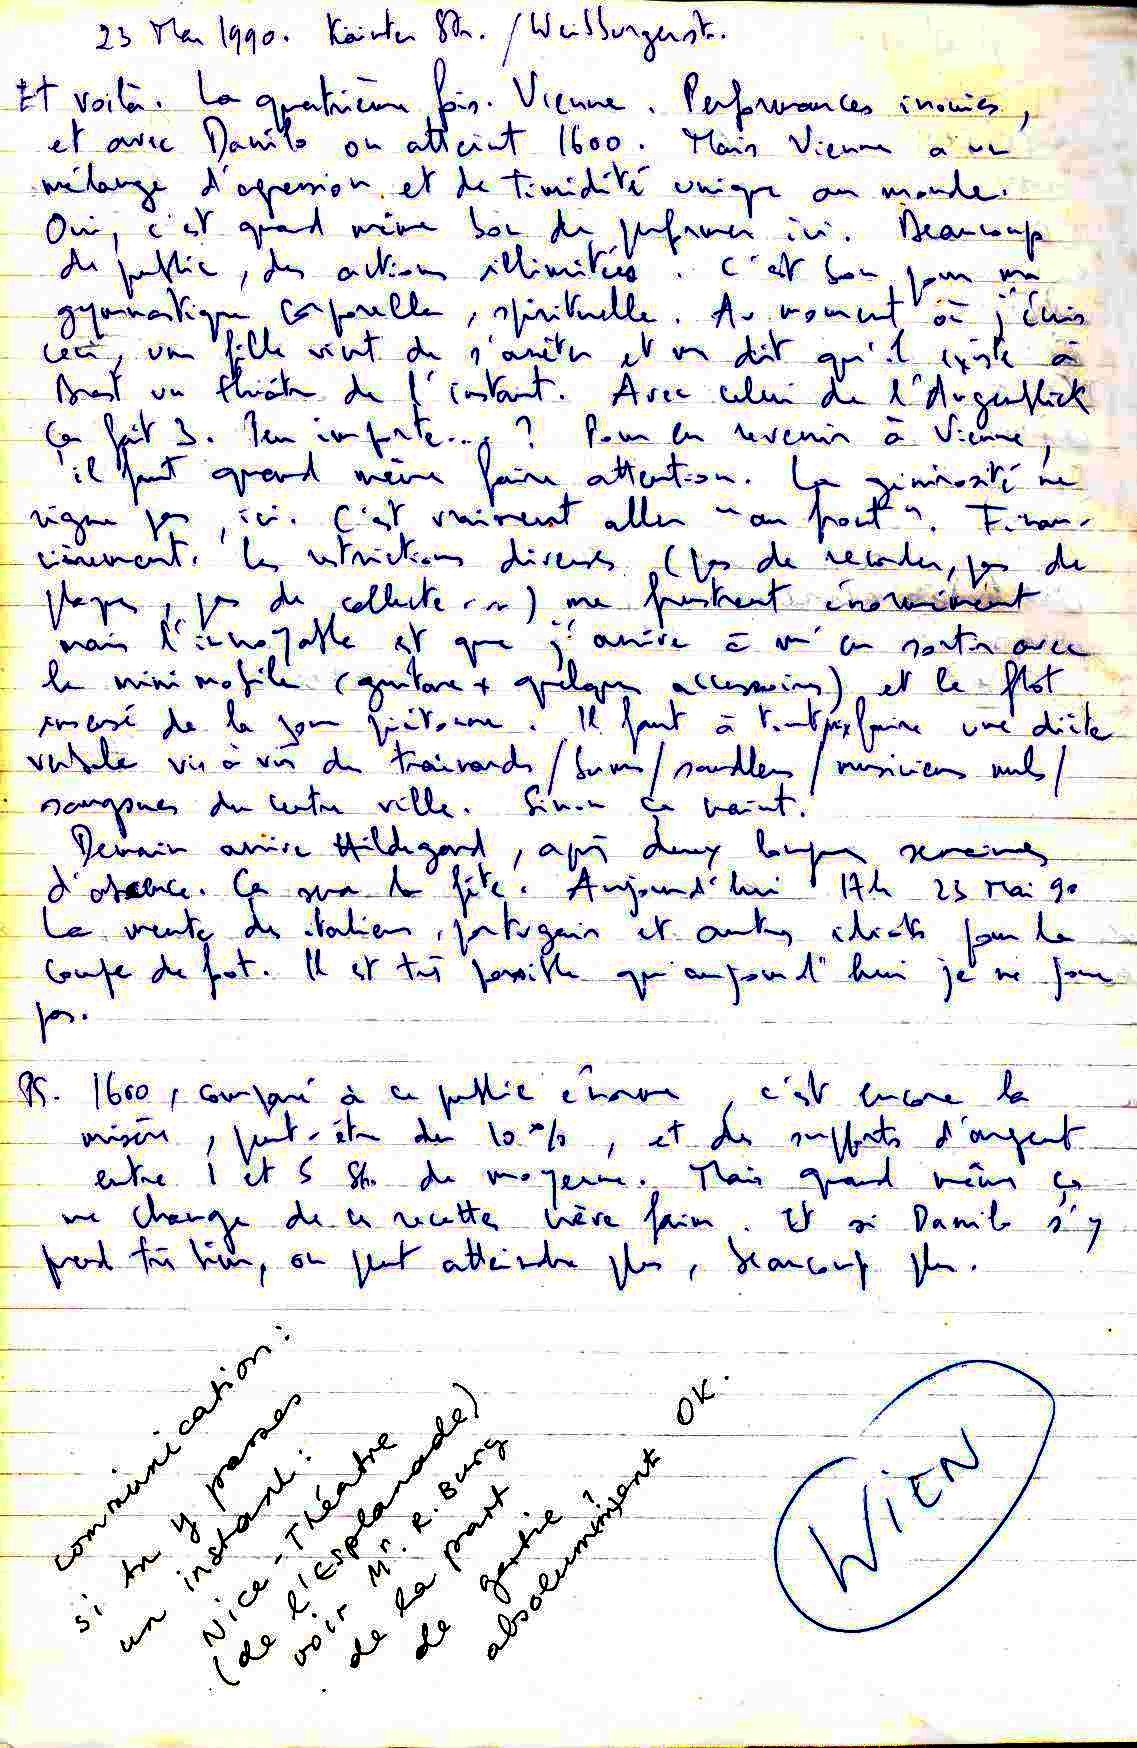 23 Mai 1990. Kärntn Str. / Weihburgerstr.
Et voilà. La quatrième fois. Vienne. Performances inouïes,
et avec Danilo on atteint 1600. Mais Vienne a un
mélange d'agression et de timidité unique au monde.
Oui, c'est quand même bon de performer ici. Beaucoup
de public, des actions illimitées. C'est bon pour ma
gymnastique corporelle, spirituelle. Au moment où j'écris
ceci, une fille vient de s'arrêter et me dit qu'il existe à
Brest un théâtre de l'instant. Avec celui de l'Augenblick
ça fait 3. Peu importe.... ? Pour en revenir à Vienne,
il faut quand même faire attention. La générosité ne
règne pas, ici. C'est vraiment aller "au front". Finan-
cièrement. Les restrictions diverses (pas de recorder, pas de
plages, pas de collecte...) me frustrent énormément
mais l'incroyable est que j'arrive à m'en sortir avec
le mini mobile (guitare + quelques accessoires) et le flot
insensé de la zone piétonne. Il faut à tout prix faire une diète
verbale vis à vis des traînards/bums/sandlers/musiciens nuls/
sangsues du centre ville. Sinon ça vaint.
Demain arrive Hildegard, après deux longues semaines
d'absence. Ça sera la fête. Aujourd'hui 17h 23 Mai 90
La vente des italiens, portugais et autres idiots pour la
coupe de foot. Il est très possible qu'aujourd'hui je ne joue
pas.
PS. 1600, comparé à ce public énorme, c'est encore la
misère, peut-être du 10 %, et des supports d'argent
entre 1 et 5 Sh. de moyenne. Mais quand même ça
me change de ces recettes crève faim. Et si Danilo s'y
prend très bien, on peut atteindre plus, beaucoup plus.
communication :
si tu y passes
un instant :
Nice-Théâtre
(de l'Esplanade)
voir Mr. R. Burg
de la part
de gertie !
absolumment OK.
WIEN